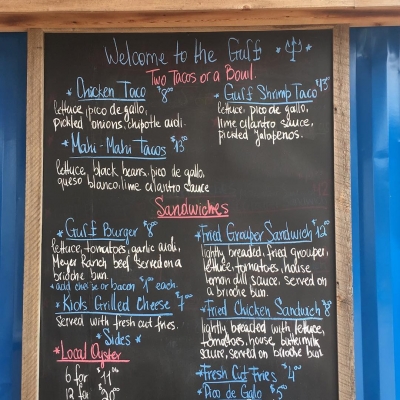 Welcome to the Gulf
Two Tacos or a Bowl.
* Chicken Taco $8
lettuce, pico de gallo,
pickled onions, chipotle aioli.
* Gulf Shrimp Taco $13
lettuce, pico de gallo,
lime cilantro sauce,
pickled jalapenos.
* Mahi-Mahi Tacos $13
lettuce, black beans, pico de gallo,
queso blanco, lime cilantro sauce
Sandwiches
* Gulf Burger $8
lettuce, tomatoes, garlic aioli,
Meyer Ranch beef served on a
brioche bun.
+ add cheese or bacon $1 each.
* Kids Grilled Cheese $7
served with fresh cut fries.
* Fried Grouper Sandwich $12
lightly breaded, fried grouper,
lettuce, tomatoes, house
lemon dill sauce, served on
a brioche bun.
* Fried Chicken Sandwich $8
lightly breaded with lettuce,
tomatoes, house buttermilk
sauce, served on brioche bun
* Sides *
* Local Oyster
6 for
12 for
* Fresh Cut Fries $4
* Pico de Galo $5